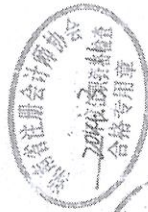 省注册会计师协会
2014年度任职资格检查
合格专用章